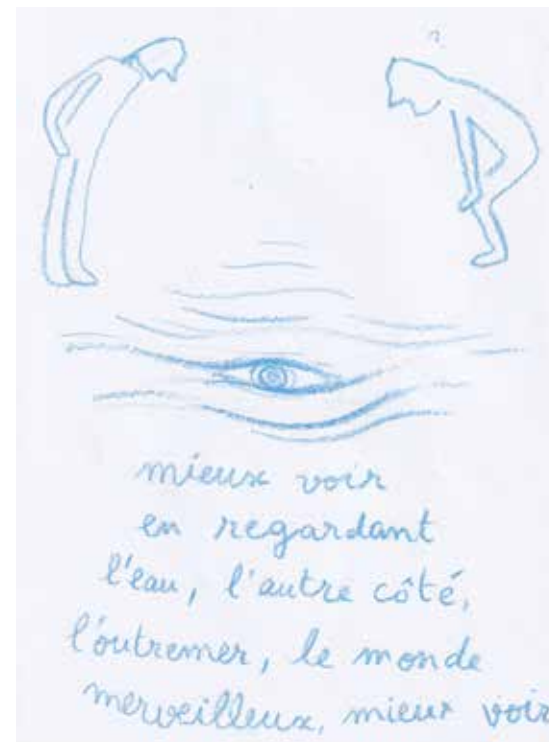 mieux voir
en regardant
l'eau, l'autre côté,
l'outremer, le monde
merveilleux, mieux voir